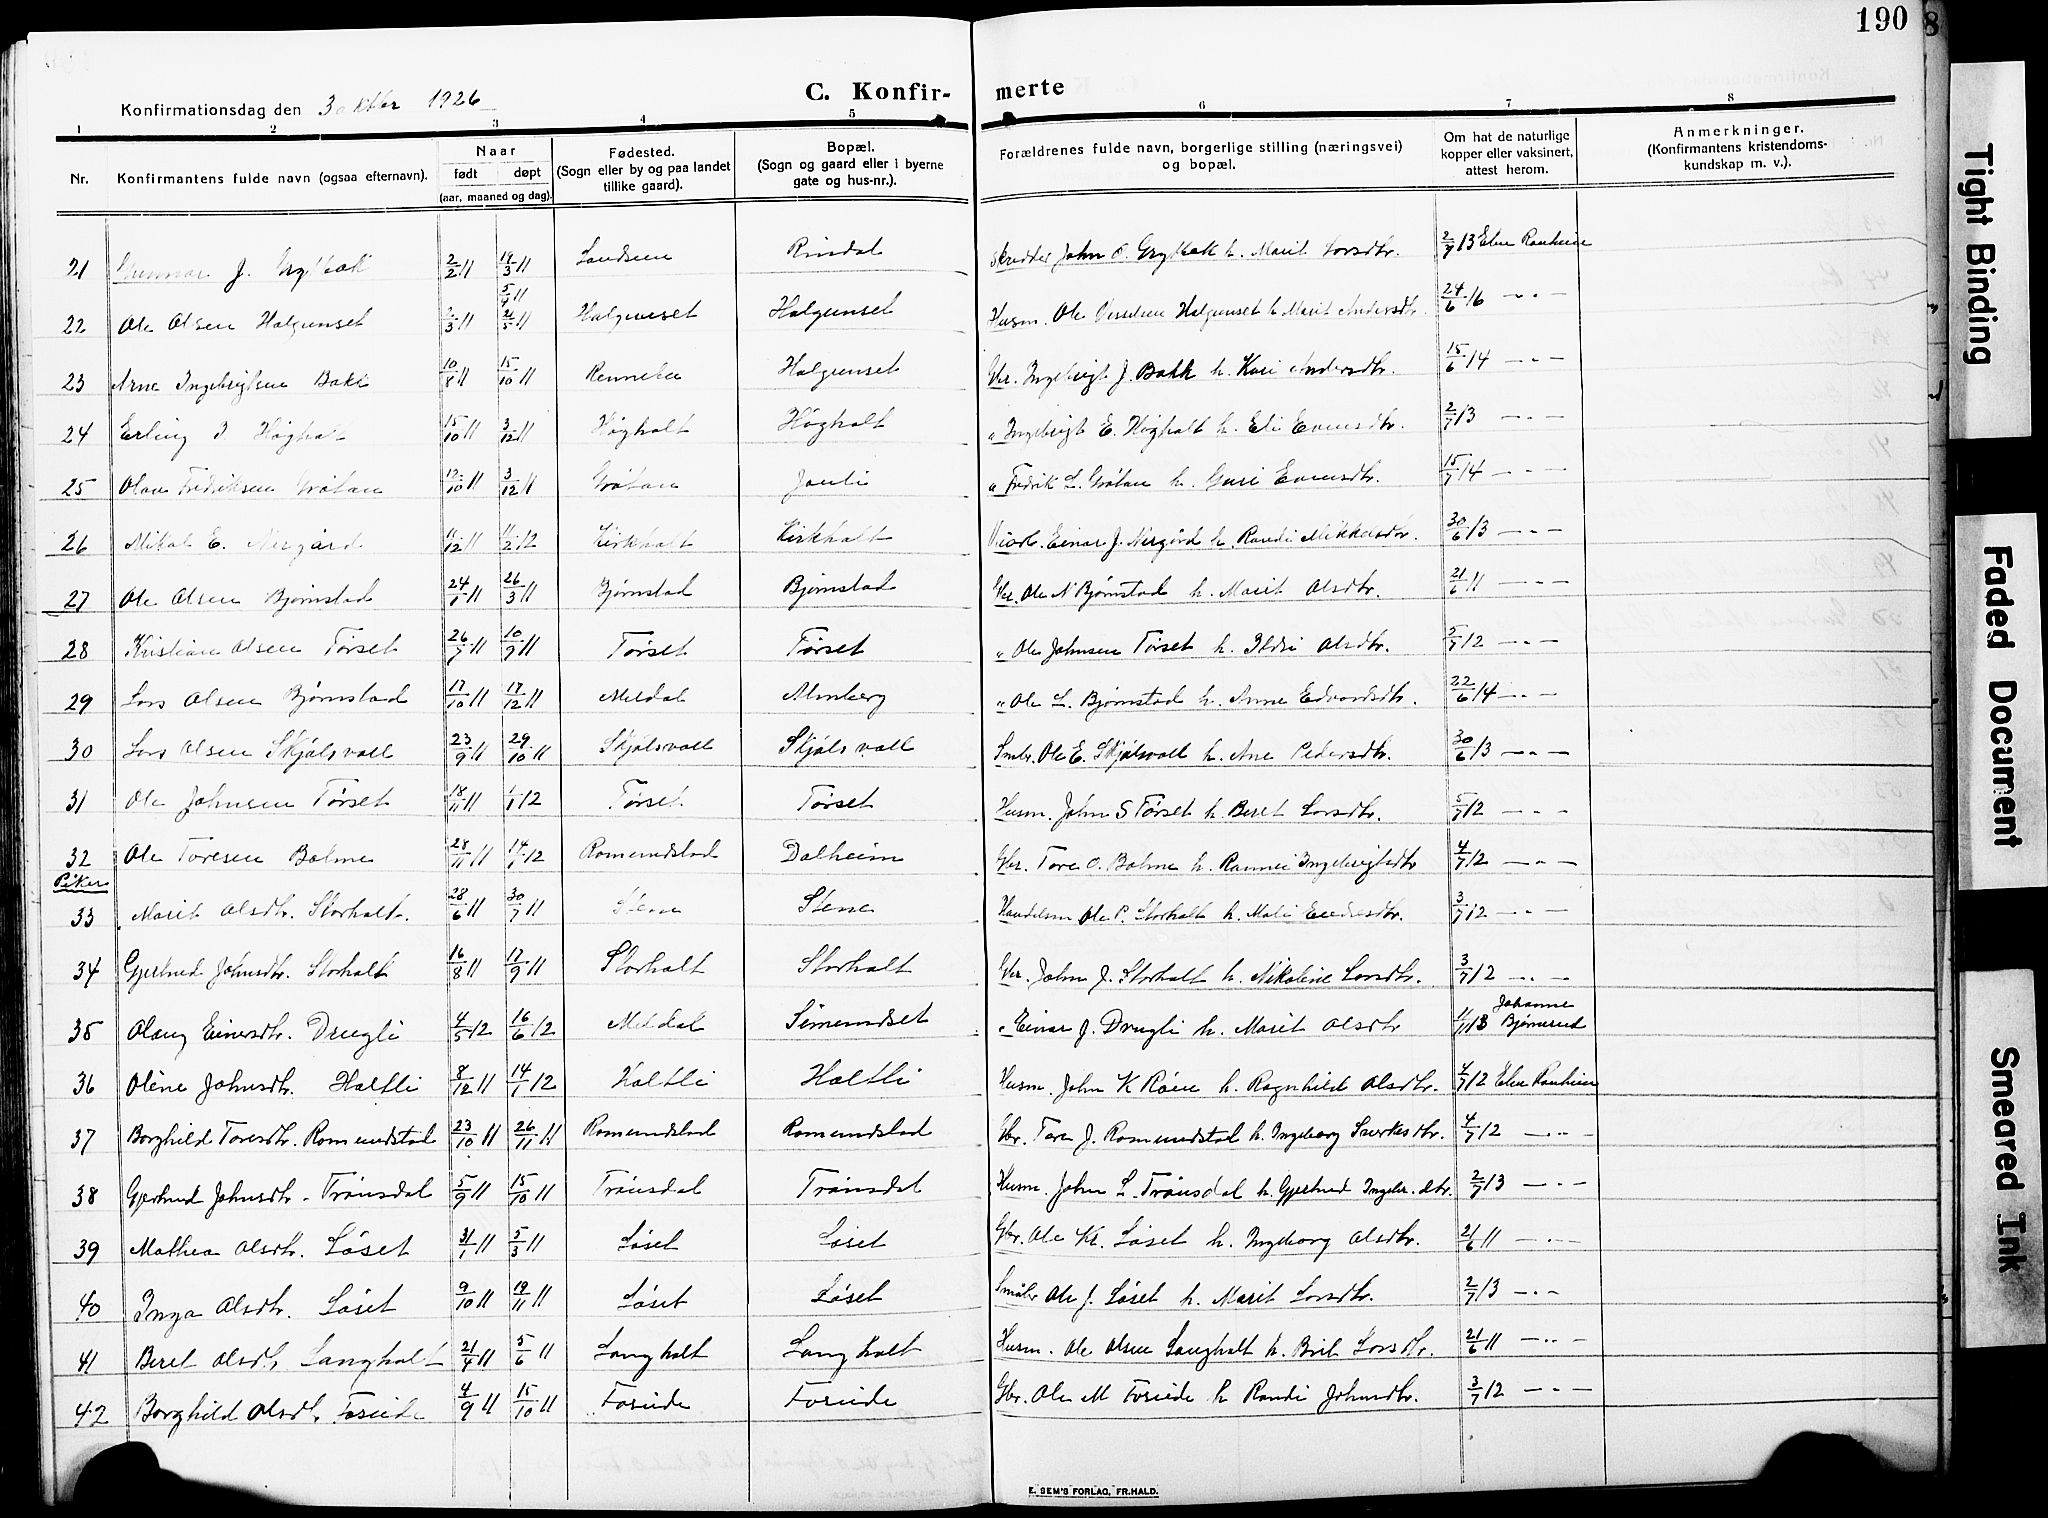 190
C. Konfir- merte
Konfirmationsdag den 3 oktbr 1926
1 2 3 4 5 6 7 8
Nr. Konfirmantens fulde navn (ogsaa efternavn). Naar født døpt (aar, maaned og dag). Fødested. (Sogn eller by og paa landet tillike gaard). Bopæl. (Sogn og gaard eller i byerne gate og hus-nr.). Forældrenes fulde navn, borgerlige stilling (næringsvei) og bopæl. Om hat de naturlige kopper eller vaksinert, attest herom. Anmerkninger. (Konfirmantens kristendoms-kundskap m. v.).
21 Gunnar J. Gryttbak 2/2 11 19/3 11 Rindal Skredder John O. Gryttbak h. Marit Larsdtr. 2/7 13
5/4 11
22 Ole Olsen Halgunset 2/3 11 21/5 11 Halgunset Halgunset Husm. Ole Halgunset h. Marit Andersdtr. 24/6 16 — " —
23 Arne Ingebrigtsen Bakk 10/8 11 15/10 11 Rennebu Halgunset Gbr. Ingebrigt J. Bakk h. Kari Andersdtr. 15/6 14 — " —
24 Erling I. Høgholt 15/10 11 3/12 11 Høgholt Høgholt " Ingebrigt E. Høgholt h. Eli Evensdtr. 2/7 13 — " —
25 Olav Fredriksen Gråtan 3/12 11 Gråtan Jonli " Fredrik L. Gråtan h. Guri Evensdtr. 15/7 14 — " —
26 Mikal E. Nergård 11/12 11 11/2 12 Kirkholt Kirkholt Einar J. Nergård h. Randi Mikkelsdtr. 30/6 13 — " —
27 Ole Olsen Bjørnstad 24/1 11 26/3 11 Bjørnstad Bjørnstad Gbr. Ole N Bjørnstad h. Marit Olsdtr. 21/6 11 — " —
28 Kristian Olsen Tørset 26/7 11 10/9 11 Tørset Tørset " Ole Johnsen Tørset h. Ildri Olsdtr. 5/7 12 — " —
29 Lars Olsen Bjørnstad 17/10 11 17/12 11 Meldal Almberg " Ole L. Bjørnstad h. Anne Edvardsdtr. 22/6 14 — " —
30 Lars Olsen Skjølsvoll 23/9 11 29/10 11 Skjølsvoll Skjølsvoll Smbr. Ole E. Skjølsvoll h. Ane Pedersdtr. 30/6 13 — " —
31 Ole Johnsen Tørset 18/11 11 1/1 12 Tørset Tørset Husm. John S Tørset h. Beret Larsdtr. 5/7 12 — " —
32 Ole Toresen Bolme 28/11 11 14/1 12 Romundstad Dalheim Gbr. Tore O. Bolme h. Rannei Ingebrigtsdtr 4/7 12 — " —
Piker
33 Marit Olsdtr. Storholt. 28/6 11 30/7 11 Stene Stene Handelsm Ole P. Storholt h. Mali 3/7 12 — " —
34 Gjertrud Johnsdtr. Storholt 16/8 11 17/9 11 Storholt Storholt Gbr. John J. Storholt h. Nikoline Larsdtr. 3/7 12 — " —
35 Olaug Einarsdtr. Drugli 4/5 12 16/6 12 Meldal Simundset " Einar J. Drugli h. Marit Olsdtr 11/11 13 Johanne Bjørnerud
36 Oline Johnsdtr. Holtli 8/12 11 14/1 12 Holtli Holtli Husm. John K Røen h. Ragnhild Olsdtr. 4/7 12
37 Borghild Toresdtr. Romundstad 23/10 11 26/11 11 Romundstad Romundstad Gbr. Tore J. Romundstad h. Ingeborg Sverkesdtr. 4/7 12 — " —
38 Gjertrud Johnsdtr. Trønsdal 5/9 11 15/10 11 Trønsdal Trønsdal Husm. John L. Trønsdal h. Gjertrud Ingebr. dtr. 2/7 13 — " —
39 Mathea Olsdtr. Løset 31/1 11 5/3 11 Løset Løset Gbr. Ole Kr. Løset h. Ingeborg Olsdtr. 21/6 11 — " —
40 Inga Olsdtr. Løset 9/10 11 19/11 11 Løset Løset Småbr Ole J. Løset h. Marit Larsdtr. 2/7 13 — " —
41 Beret Olsdtr. Langholt 21/4 11 5/6 11 Langholt Langholt Husm. Ole Olsen Langholt h. Brit Larsdtr. 21/6 11 — " —
42 Borghild Olsdtr. Foseide 4/9 11 15/10 11 Foseide Foseide Gbr. Ole M Foseide h Randi Johnsdtr. 3/7 12 — " —
E. SEM'S FORLAG, FR.HALD.
Tight Binding
Faded Document
Smeared Ink